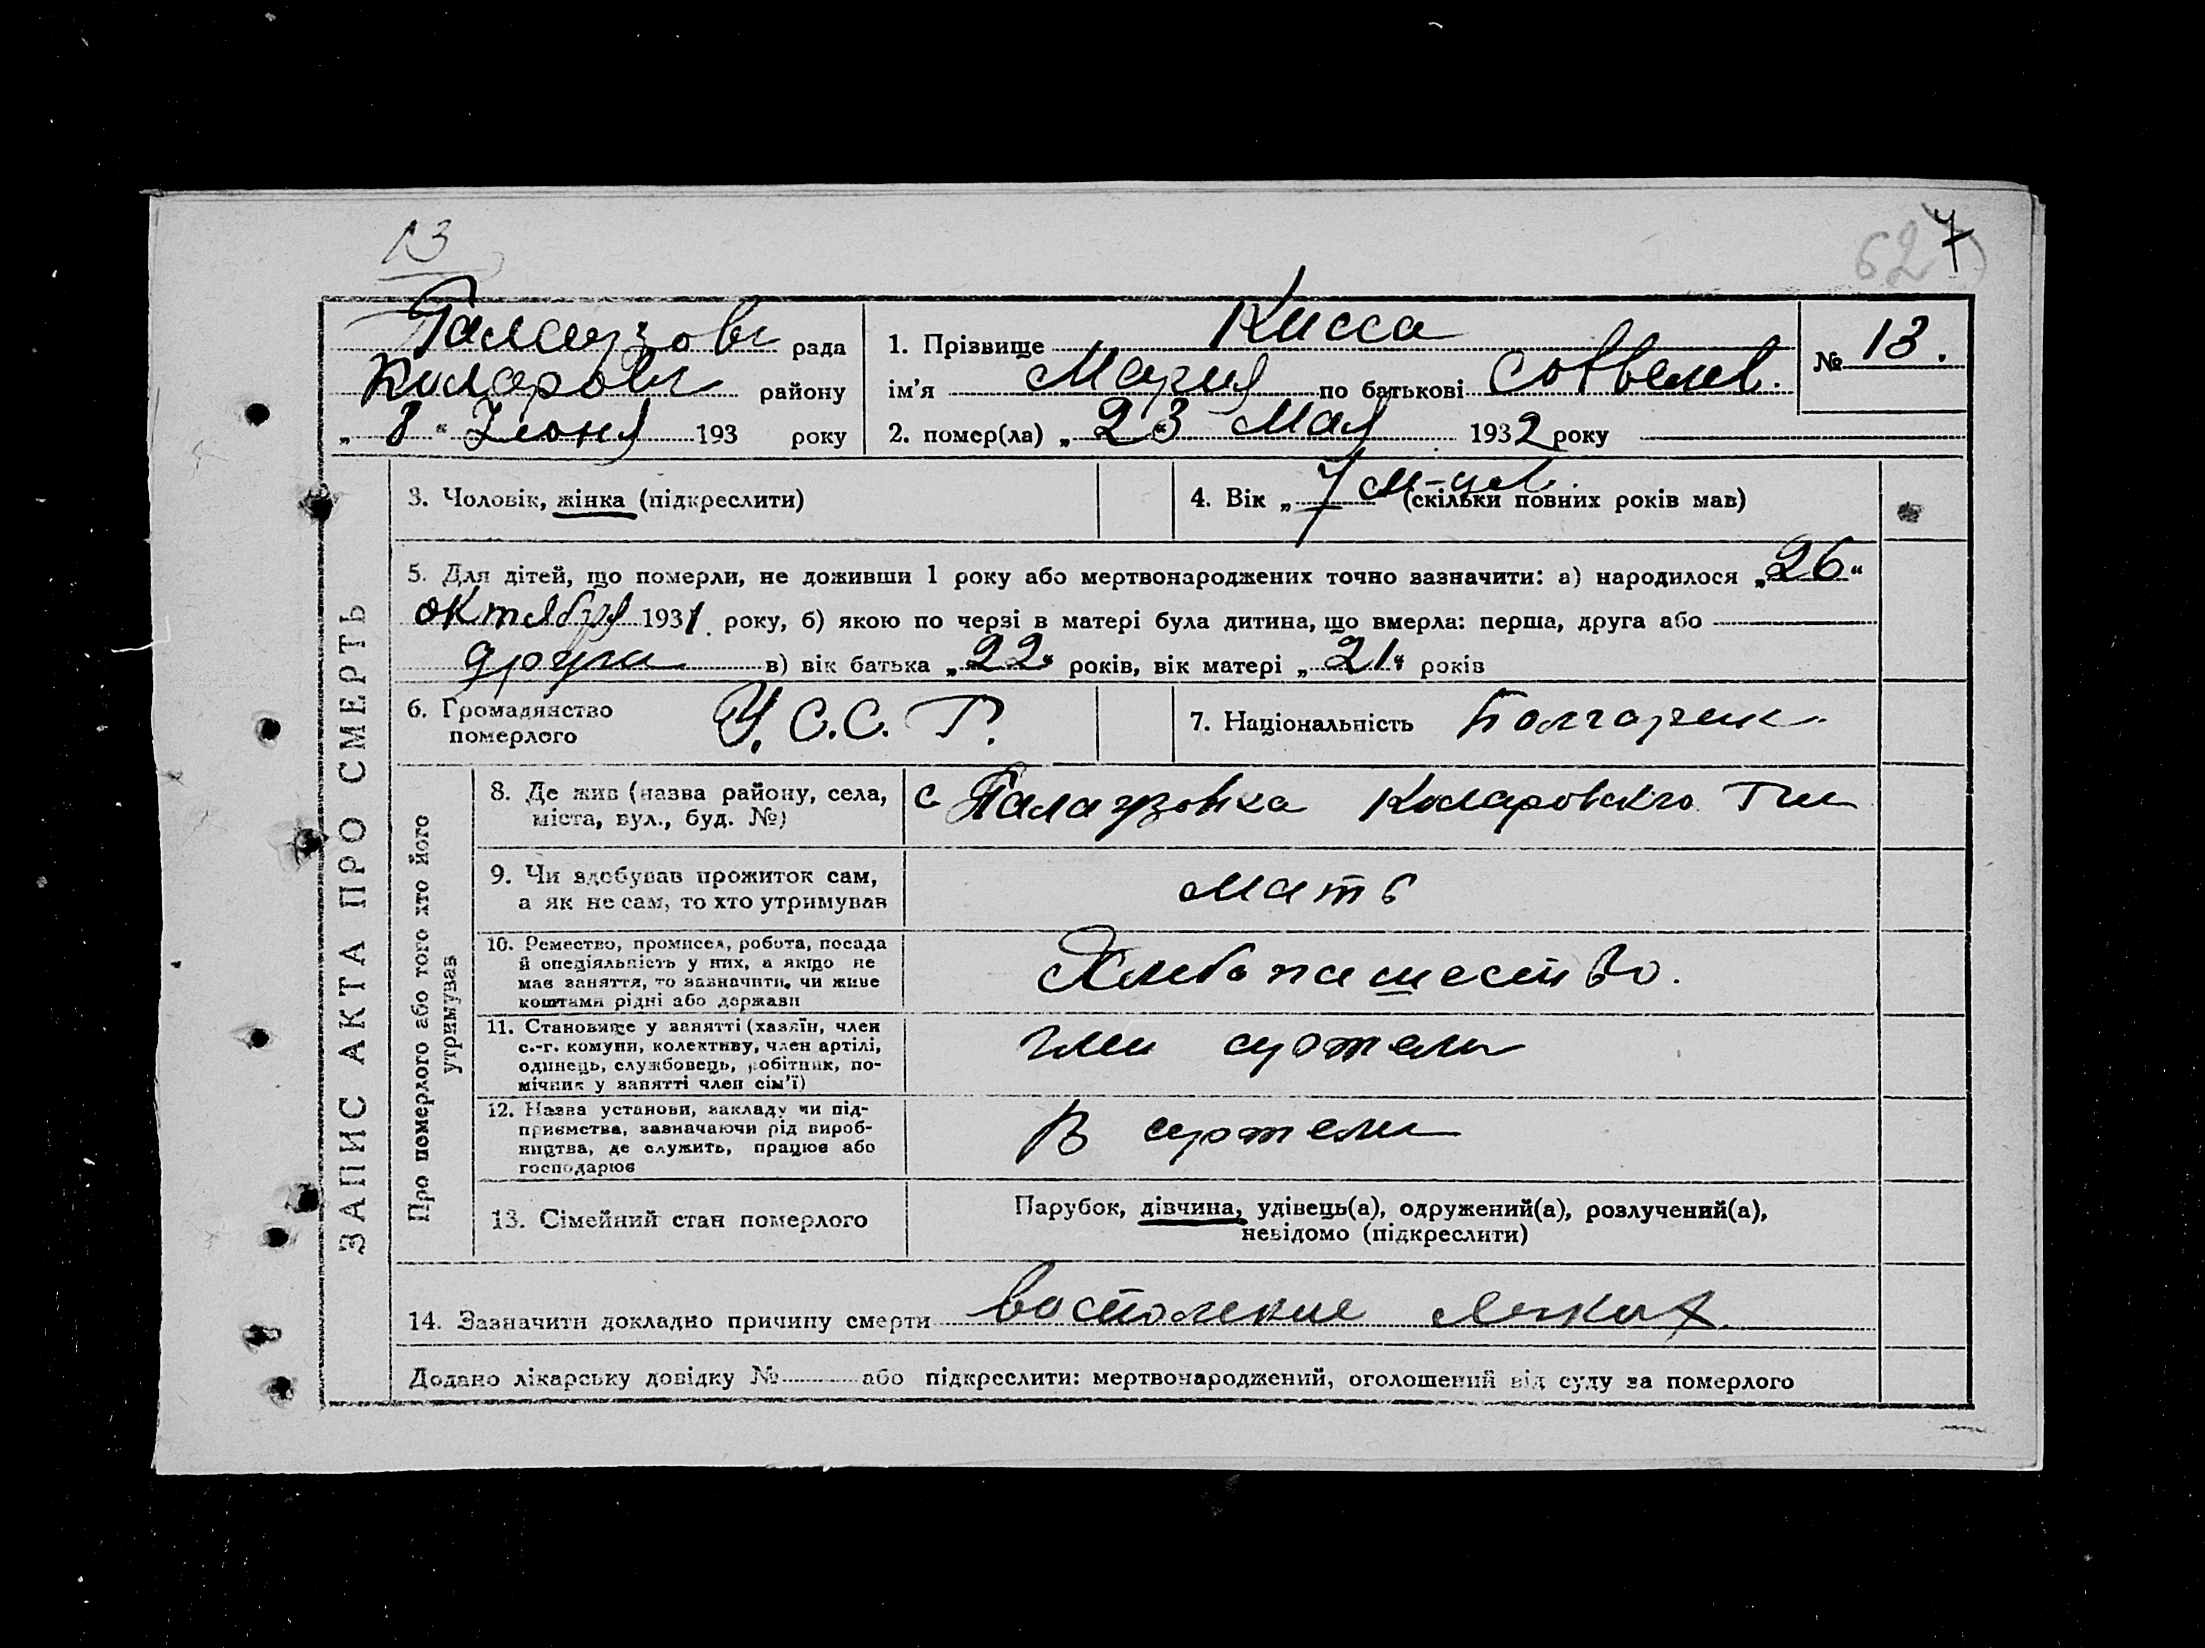 13
627
7
Палаузовк рада
Коларовк району
„ 8 “ Июня 193 року
1. Прізвище Кисса
ім’я Мария по батькові Савельев.
2. помер(ла) „ 23 Мая 1932 року
№ 13.
ЗАПИС АКТА ПРО СМЕРТЬ
3. Чоловік, жінка (підкреслити)
4. Вік „ 7 м-цев. (скільки повних років мав)
5. Для дітей, що померли, не доживши 1 року або мертвонароджених точно зазначити: а) народилося „26“
октября 1931 року, б) якою по черзі в матері була дитина, що вмерла: перша, друга або
друга в) вік батька „22“ років, вік матері „21“ років
6. Громадянство
померлого У.С.С.Р.
7. Національність Болгарка
Про померлого або того хто його
утримував
8. Де жив (назва району, села,
міста, вул., буд. №) с Палаузовка Коларовского
9. Чи здобував прожиток сам,
а як не сам, то хто утримував мать
10. Ремество, промисел, робота, посада
й спеціяльність у них, а якщо не
має заняття, то зазначити, чи живе
коштами рідні або держави Хлебопашество.
11. Становище у занятті (хазяїн, член
с.-г. комуни, колективу, член артілі,
одинець, службовець, робітник, по-
мічник у занятті член сім’ї) член артели
12. Назва установи, закладу чи під-
приємства, зазначаючи рід вироб-
ництва, де служить, працює або
господарює В артели
13. Сімейний стан померлого
Парубок, дівчина, удівець(а), одружений(а), розлучений(а),
невідомо (підкреслити)
14. Зазначити докладно причину смерти воспомение легких
Додано лікарську довідку № або підкреслити: мертвонароджений, оголошений від суду за померлого